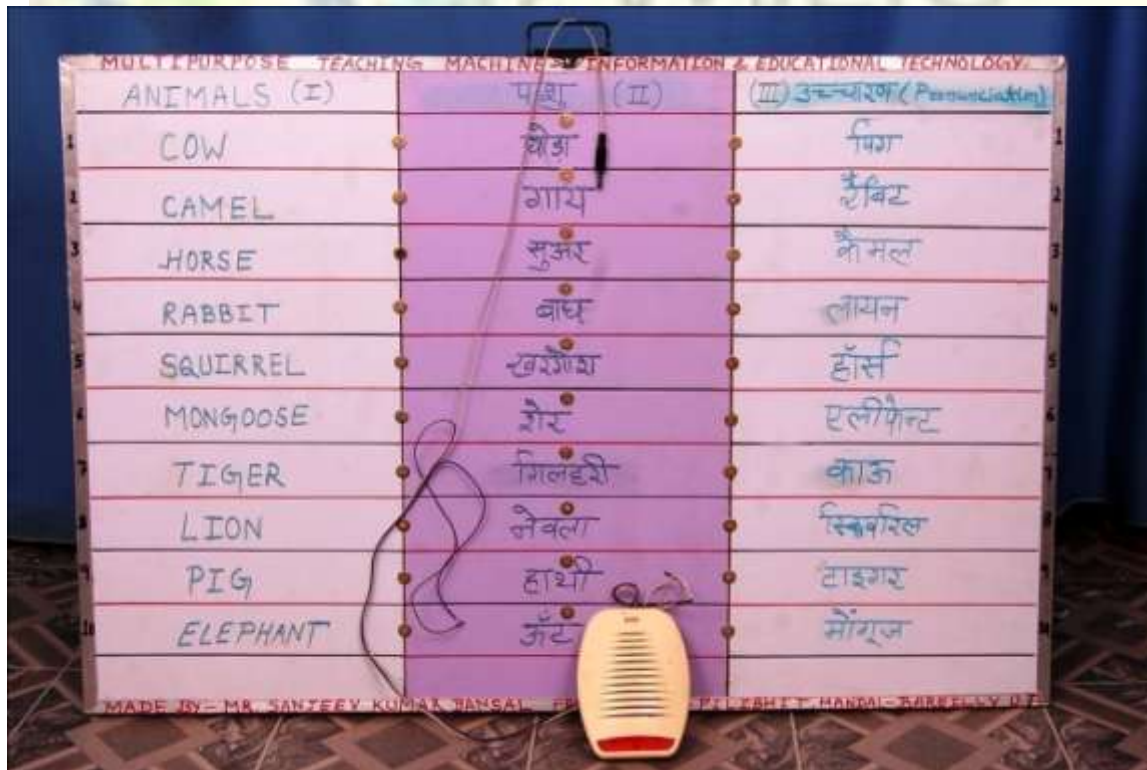 MULTIPURPOSE TEACHING MACHINE INFORMATION & EDUCATIONAL TECHNOLOGY.
ANIMALS (I) पशु (II) (III) उच्चारण (Pronunciation)
1 COW घोड़ा पिग 1
2 CAMEL गाय रैबिट 2
3 HORSE सुअर कैमल 3
4 RABBIT बाघ लायन 4
5 SQUIRREL खरगोश हॉर्स 5
6 MONGOOSE शेर एलीफेन्ट 6
7 TIGER गिलहरी काऊ 7
8 LION नेवला स्किवरिल 8
9 PIG हाथी टाइगर
10 ELEPHANT ऊँट मोंगूज
MADE BY - MR. SANJEEV KUMAR BANSAL PILIBHIT, MANDAL - BAREILLY